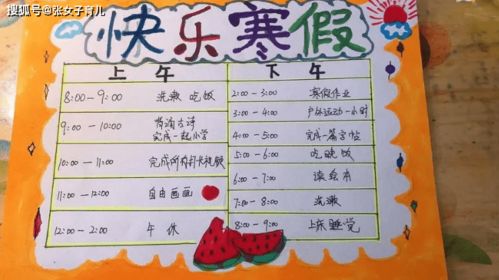 搜狐号@张女子育儿
快乐寒假
上午
8:00-9:00 洗漱 吃饭
9:00-10:00 背诵古诗
完成一起小学
10:00-11:00 完成所有打卡视频
11:00-12:00 自由画画
12:00-2:00 午休
下午
2:00-3:00 寒假作业
3:00-4:00 户外运动一小时
4:00-5:00 完成一篇字帖
5:00-6:00 吃晚饭
6:00-7:00 读绘本
7:00-8:00 洗漱
8:00-9:00 上床睡觉